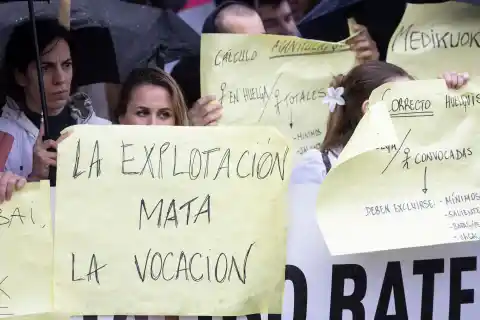 CÁLCULO
♀ EN HUELGA / ♀ TOTALES
MÍNIMOS
MEDIKUOK
CORRECTO
HUELGUIS
♀ CONVOCADAS
DEBEN EXCLUIRSE: - MÍNIMOS
- SALIENTE
LA EXPLOTACIÓN
MATA
LA VOCACION
BAI,
BATE